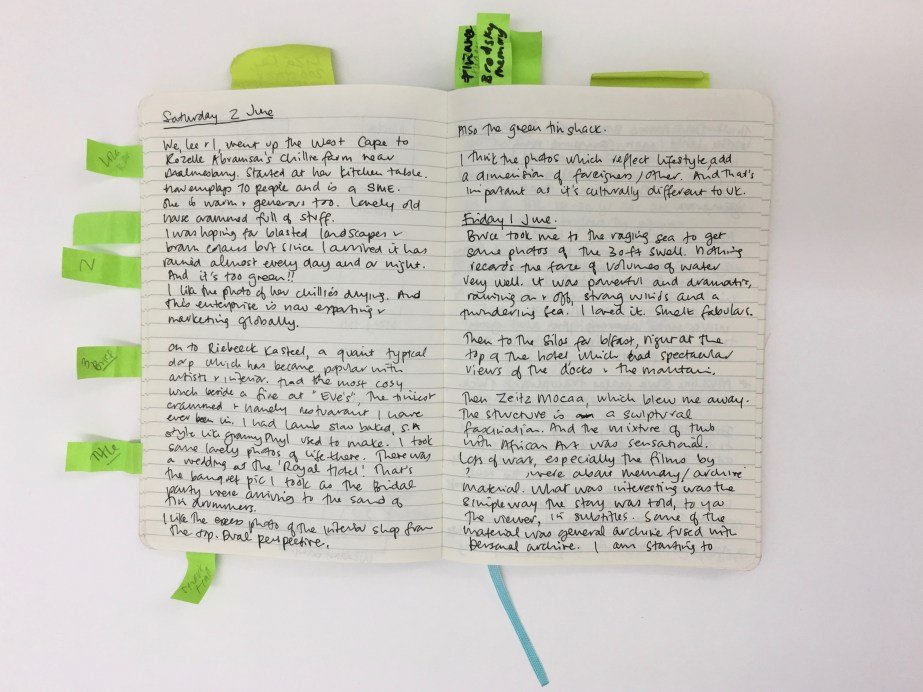 Brodsky
memory
Saturday 2 June
We, Lee + I, went up the West Cape to
Rozelle Abramson's chillie farm near
Malmesbury. Started at her kitchen table.
Now employs 70 people and is a SME.
She is warm + generous too. Lovely old
house crammed full of stuff.
I was hoping for blasted landscapes +
brown colours but since I arrived it has
rained almost every day and or night.
And it's too green!!
I like the photo of her chillies drying. And
this enterprise is now exporting +
marketing globally.
On to Riebeeck Kasteel, a quaint typical
dorp which has become popular with
artists + interior. Had the most cosy
lunch beside a fire at "Eve's", the
crammed + homely restaurant I have
ever been in. I had lamb slow baked, S.A
style like Granny Phyl used to make. I took
some lovely photos of life there. There was
a wedding at the 'Royal Hotel'. That's
the banquet pic I took as the Bridal
party were arriving to the sound of
drummers.
I like the photo of the interior shop from
the top. Eval perspective.
2
3
Title
Also the green tin shack.
I think the photos which reflect lifestyle, add
a dimension of foreigness/other. And that's
important as it's culturally different to UK.
Friday 1 June.
Bruce took me to the raging sea to get
some photos of the 30ft swell. Nothing
records the force of volumes of water
very well. It was powerful and dramatic,
raining on + off, strong winds and a
thundering sea. I loved it. Smelt fabulous.
Then to the Silos for b/fast, right at the
top of the hotel which had spectacular
views of the docks + the mountain.
Then Zeitz Mocaa, which blew me away.
The structure is a sculptural
fascination. And the mixture of that
with African Art was sensational.
Lots of work, especially the films by
? were about memory/archive
material. What was interesting was the
simple way the story was told, to you
the viewer, in subtitles. Some of the
material was general archive fused with
personal archive. I am starting to